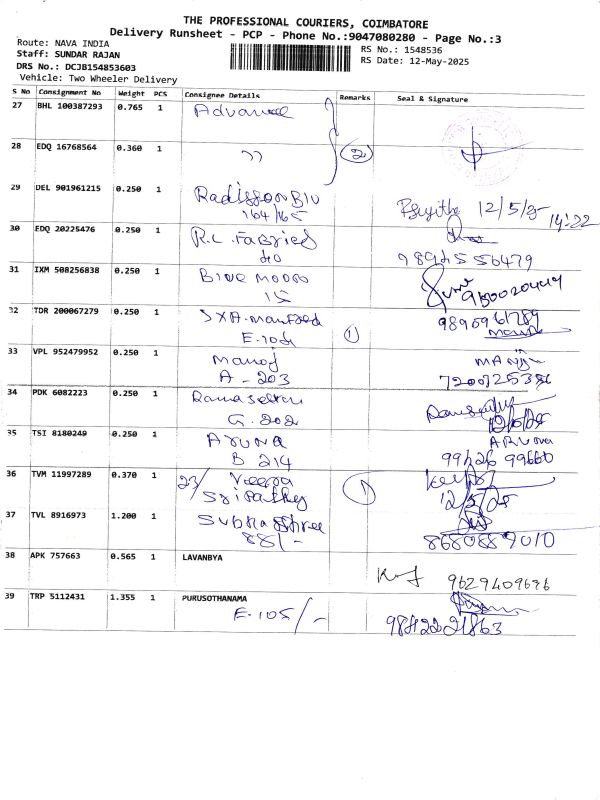 THE PROFESSIONAL COURIERS, COIMBATORE
Delivery Runsheet - PCP - Phone No.:9047080280 - Page No.:3
Route: NAVA INDIA
Staff: SUNDAR RAJAN
DRS No.: DCJB154853603
Vehicle: Two Wheeler Delivery
RS No.: 1548536
RS Date: 12-May-2025
S No Consignment No Weight PCS Consignee Details Remarks Seal & Signature
27 BHL 100387293 0.765 1
28 EDQ 16768564 0.360 1 ” 2
29 DEL 901961215 0.250 1 Radisson Blu
164/165 12/5/25 14:22
30 EDQ 20225476 0.250 1 R.L. Fabried
40 9894556479
31 IXM 508256838 0.250 1 Blue Moon
15
32 TDR 200067279 0.250 1 1 9895961789
E-104
33 VPL 952479952 0.250 1 Manoj MANJU
A - 203 7200725386
34 PDK 6082223 0.250 1
G. 202
35 TSI 8180249 0.250 1 ARUNA ARUNA
B 214 99426 99660
36 TVM 11997289 0.370 1 23/ Veera 1
Sripathy 12/5/25
37 TVL 8916973 1.200 1 Subhashree
88/- 8680889010
38 APK 757663 0.565 1 LAVANBYA
9629409696
39 TRP 5112431 1.355 1 PURUSOTHANAMA
E-105/- 9842221863